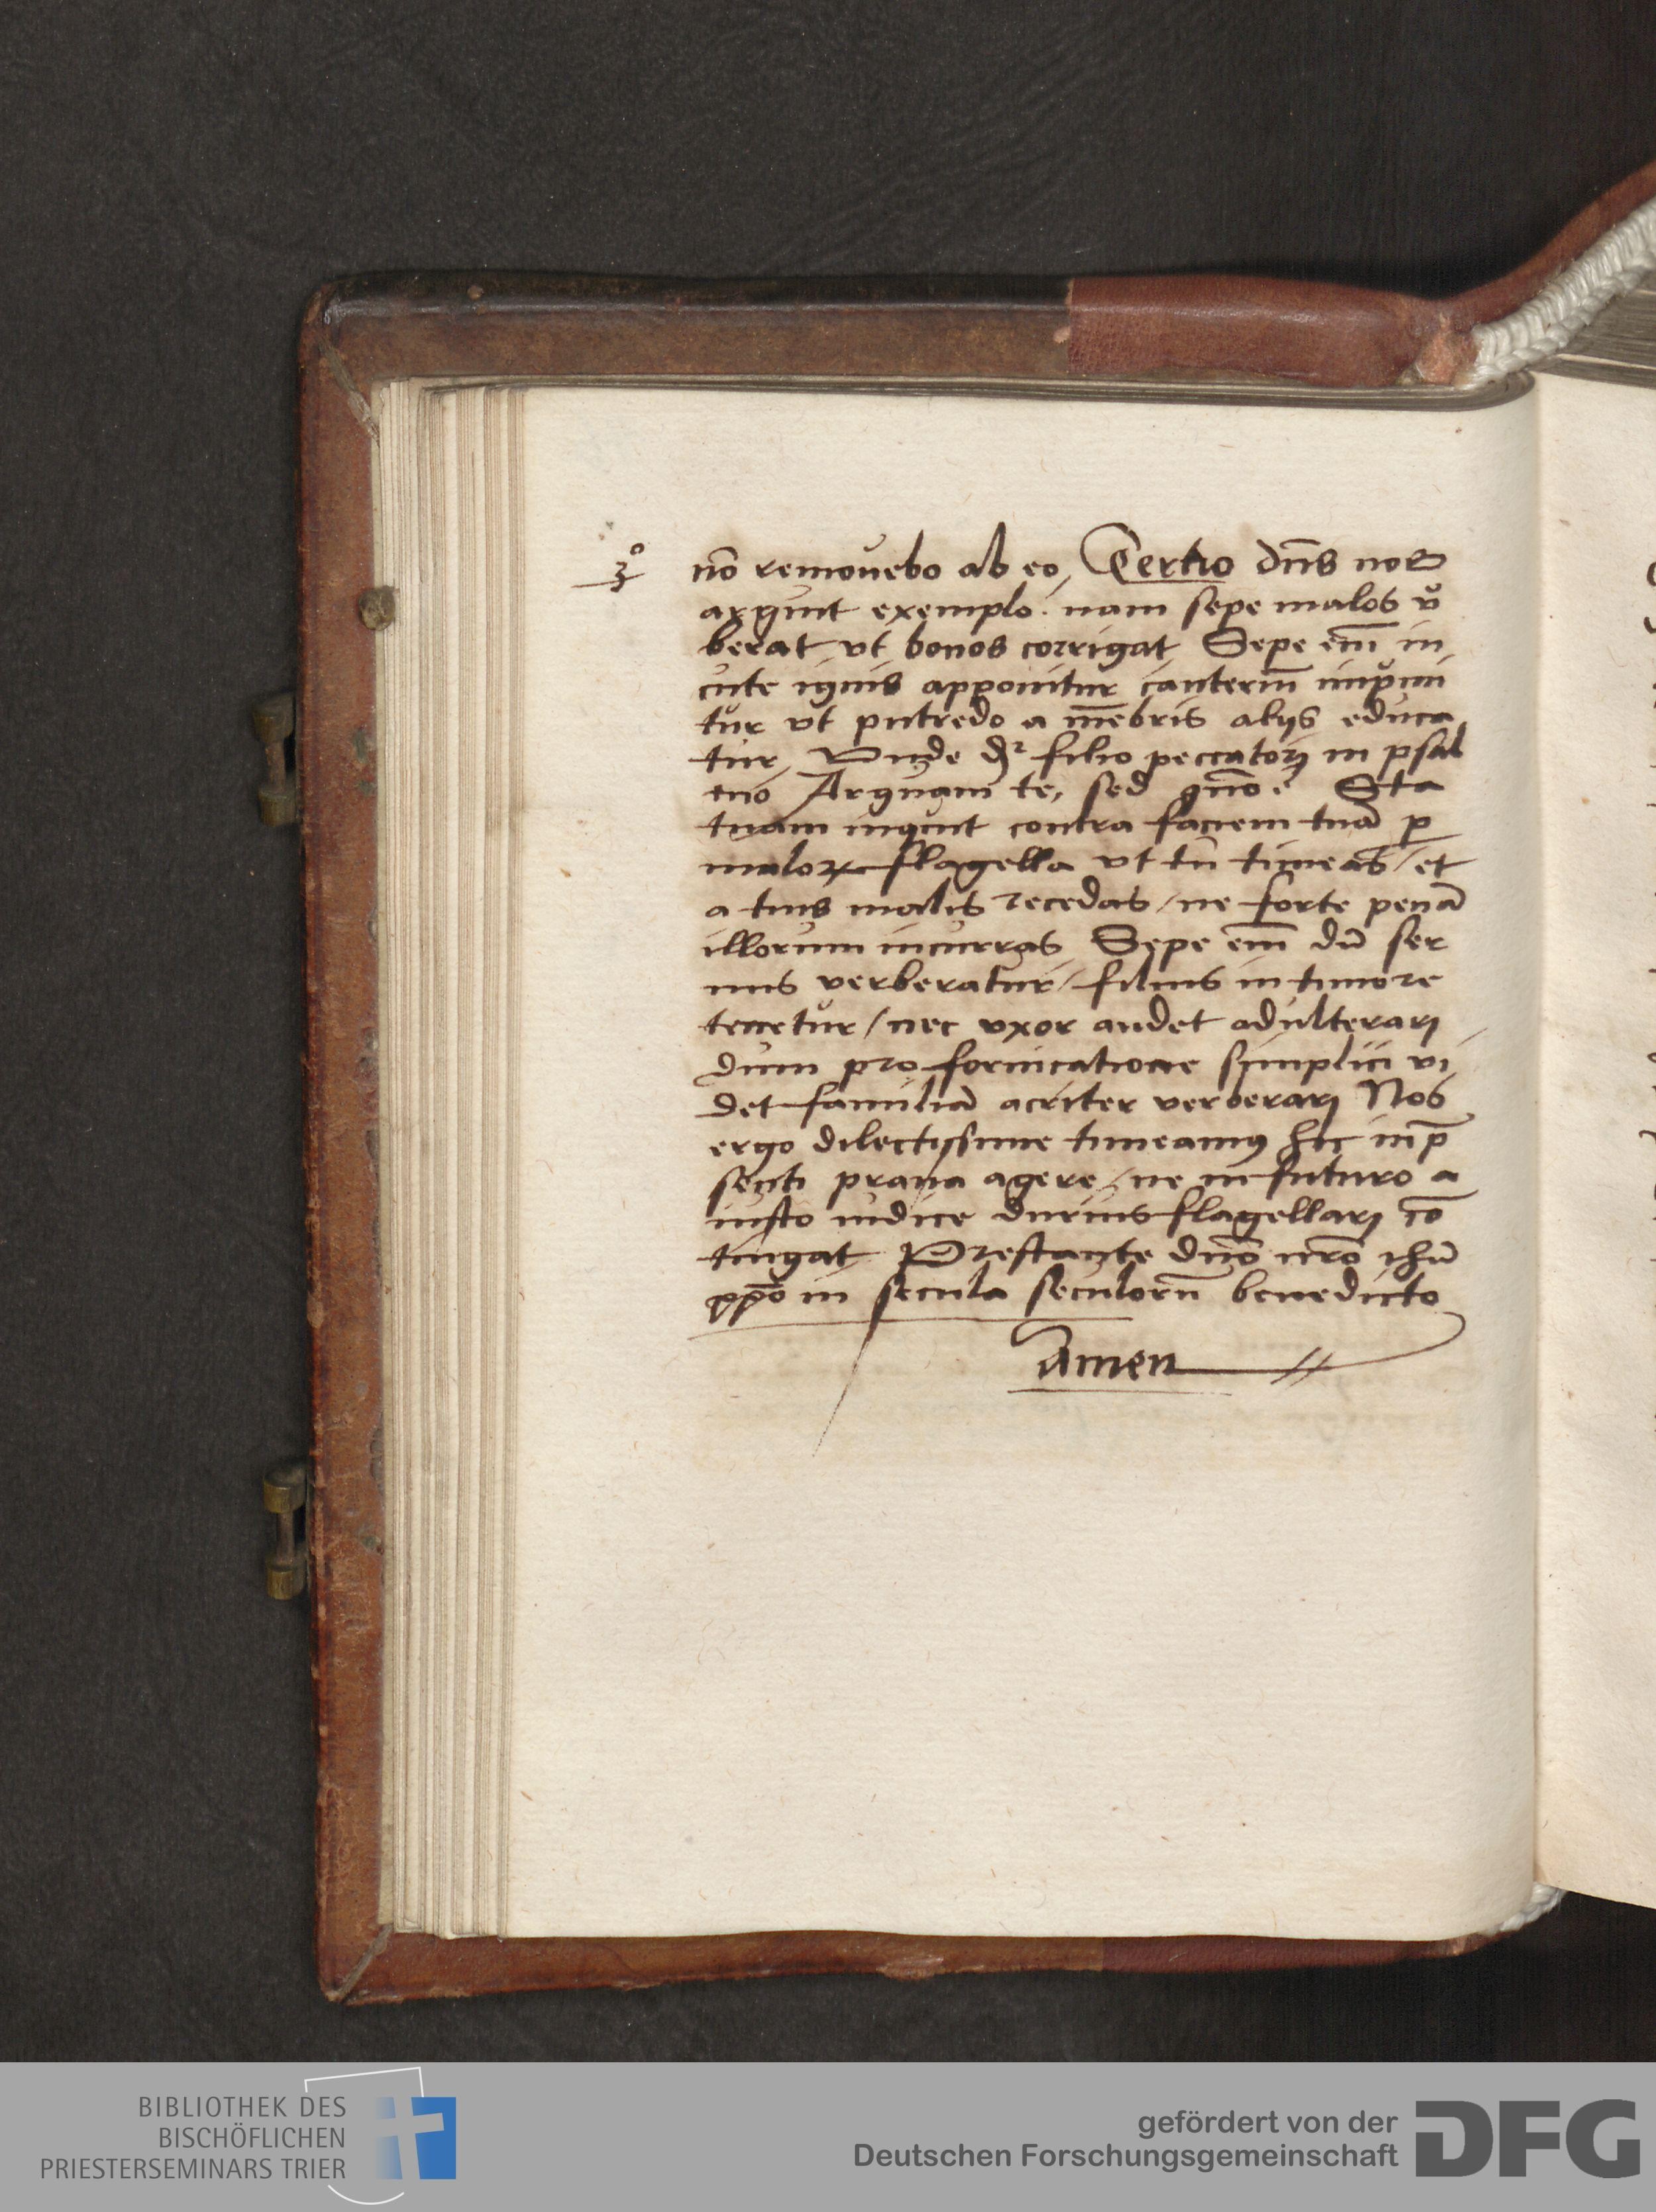 3º
nō remouebo ab eo, Tertio dn̄s nos
arguit exemplo. nam sepe malos v̄
berat vt bonos corrigat Sepe em̄ in
cute ignis apponitur cauteriū inpͥmi
tur vt putredo a mēbris alijs educa
tur, Vnde dr̄ filio peccatorj in psal
mo Arguam te, sed quō? Sta
tuam inquit contra faciem tuā ꝑ
maloꝝ flagella vt tu timeas / et
a tuis malis recedas / ne forte penā
illorum incurras Sepe em̄ dū ser
uus verberatur / filius in timore
tenetur / nec vxor audet adulterarj
dum pro fornicatione simplici vi
det familiā acriter verberarj Nos
ergo dilectissime timeamꝰ hic in p̄
senti praua agere / ne in futuro a
iusto iudice durius flagellarj cō
tingat Prestante dn̄o nr̄o ihū
xp̄o in secula seculorū benedicto
Amen
BIBLIOTHEK DES
BISCHÖFLICHEN
PRIESTERSEMINARS TRIER
gefördert von der
Deutschen Forschungsgemeinschaft
DFG